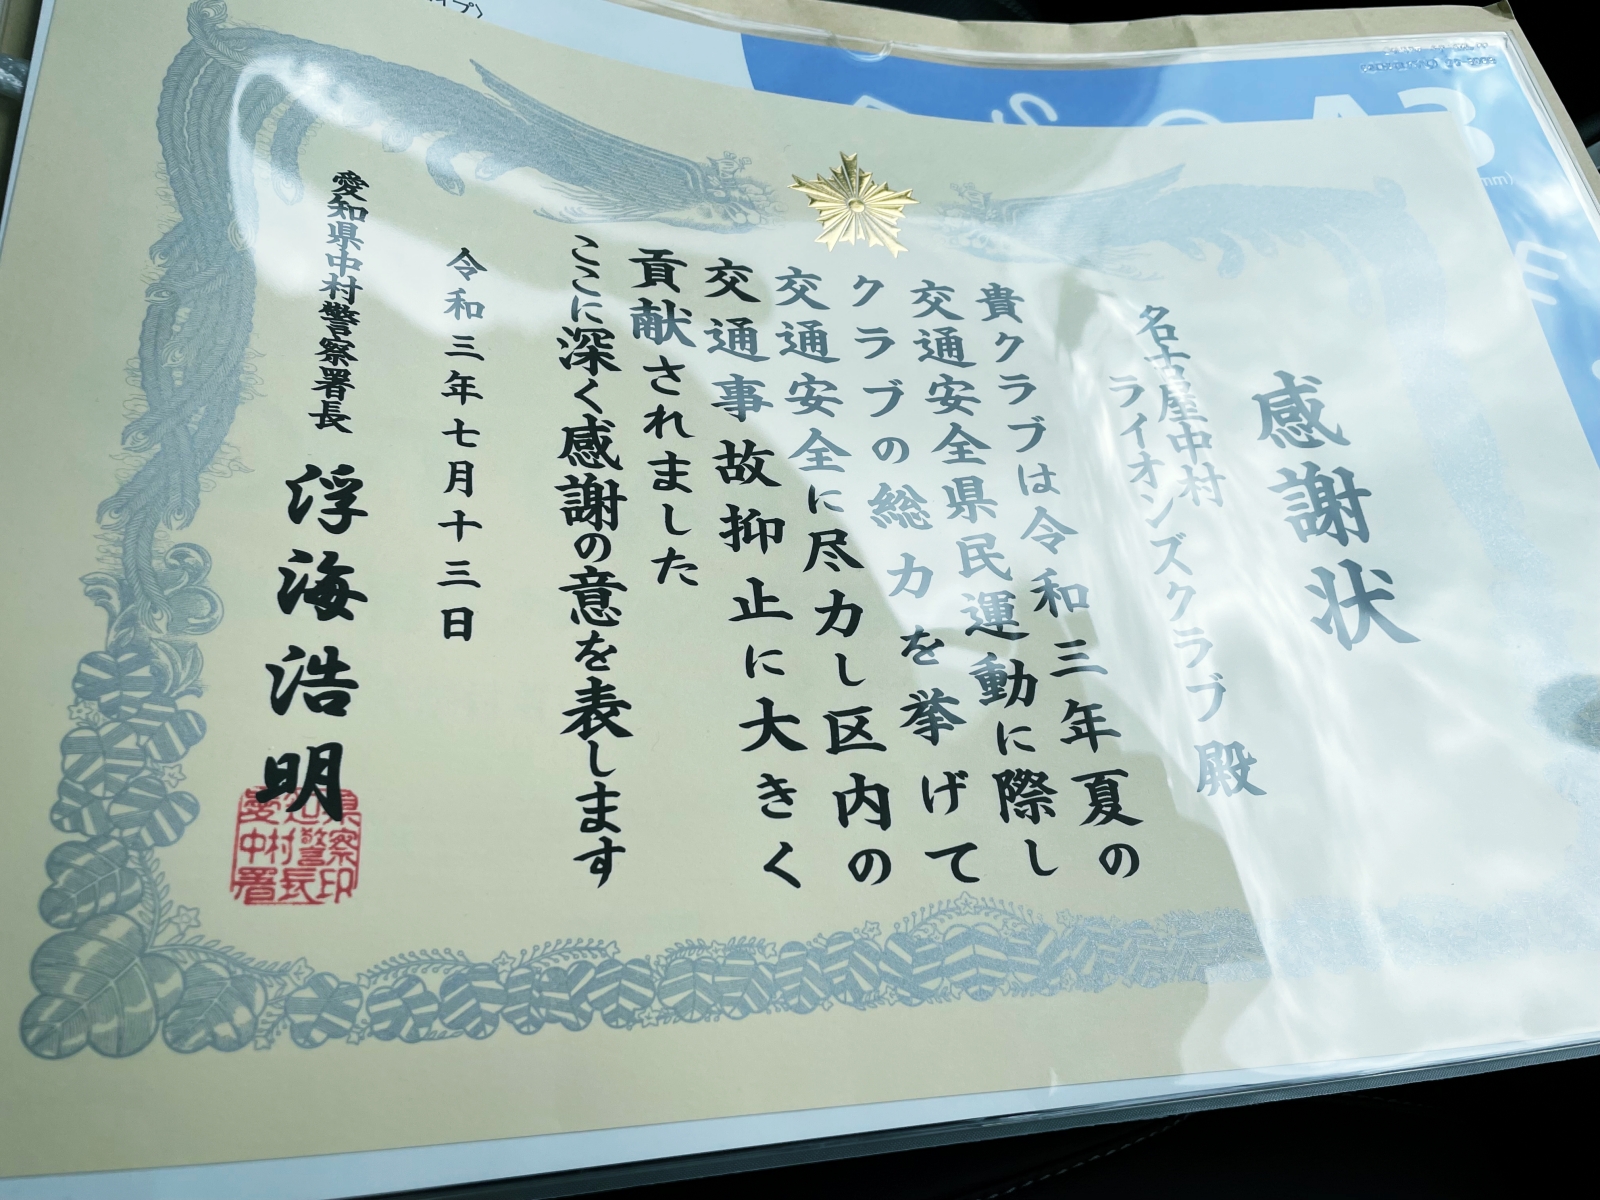 感謝状
名古屋中村
ライオンズクラブ殿
貴クラブは令和三年夏の
交通安全県民運動に際し
クラブの総力を挙げて
交通安全に尽力し区内の
交通事故抑止に大きく
貢献されました
ここに深く感謝の意を表します
令和三年七月十三日
愛知県中村警察署長 浮海浩明
愛知県
中村警察
署長印
A3